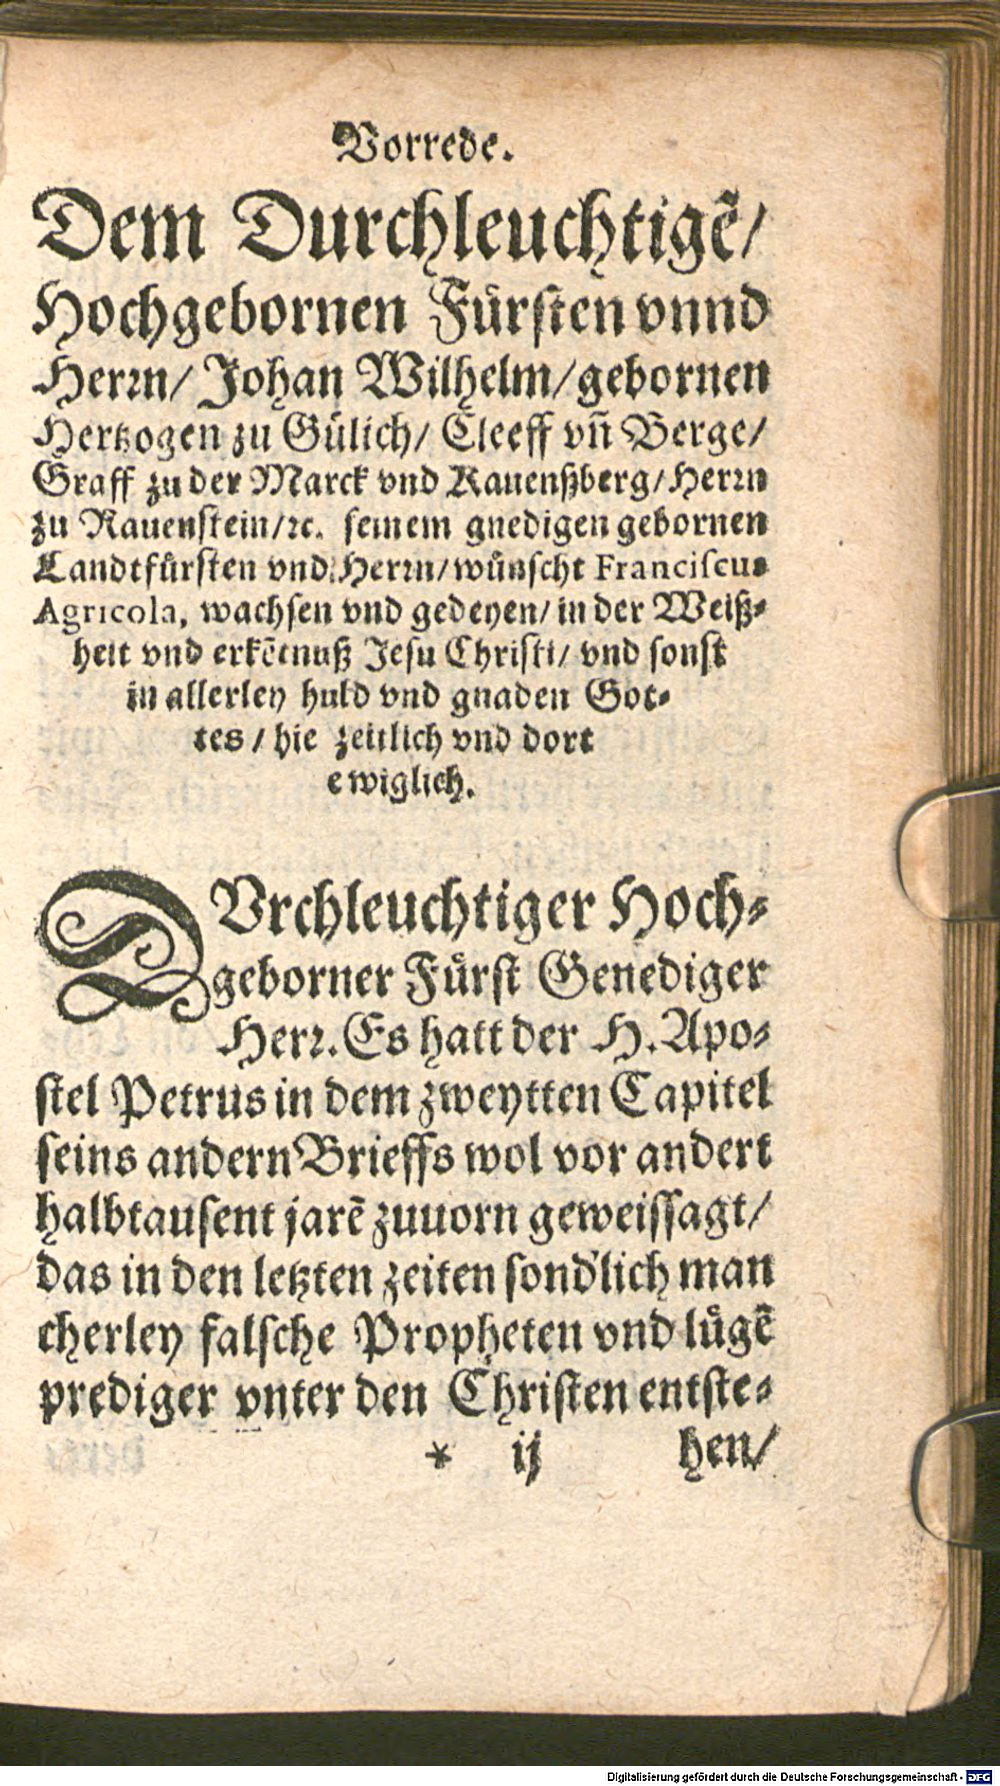 Vorrede.
Dem Durchleuchtigẽ/
Hochgebornen Fürsten vnnd
Herrn/ Johan Wilhelm/ gebornen
Hertzogen zu Gülich/ Cleeff vñ Berge/
Graff zu der Marck vnd Rauenßberg/ Herrn
zu Rauenstein/ ꝛc. seinem gnedigen gebornen
Landtfürsten vnd Herrn/ wünscht Franciscus
Agricola, wachsen vnd gedeyen/ in der Weiß-
heit vnd erkẽtnuß Jesu Christi/ vnd sonst
in allerley huld vnd gnaden Got-
tes / hie zeitlich vnd dort
ewiglich.
DVrchleuchtiger Hoch-
geborner Fürst Genediger
Herr. Es hatt der H. Apo-
stel Petrus in dem zweytten Capitel
seins andern Brieffs wol vor andert
halbtausent jarẽ zuuorn geweissagt/
das in den letzten zeiten sond'lich man
cherley falsche Propheten vnd lügẽ
prediger vnter den Christen entste-
* ij hen/
Digitalisierung gefördert durch die Deutsche Forschungsgemeinschaft - DFG